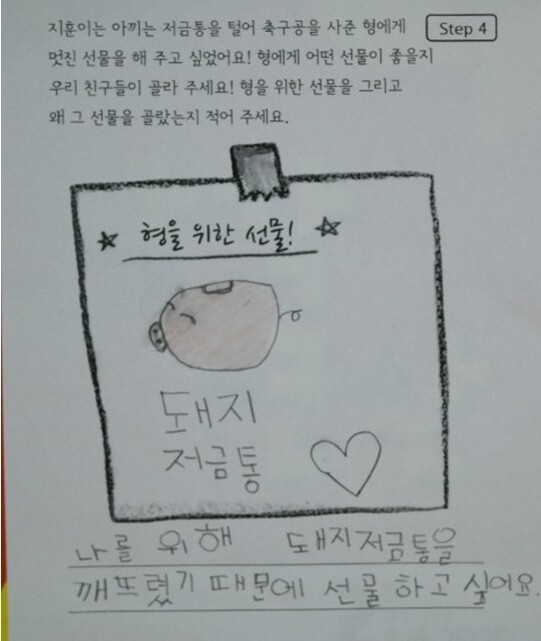 지훈이는 아끼는 저금통을 털어 축구공을 사준 형에게
Step 4
멋진 선물을 해 주고 싶었어요! 형에게 어떤 선물이 좋을지
우리 친구들이 골라 주세요! 형을 위한 선물을 그리고
왜 그 선물을 골랐는지 적어 주세요.
형을 위한 선물!
돼지
저금통
나를 위해 돼지저금통을
깨뜨렸기 때문에 선물 하고 싶어요.